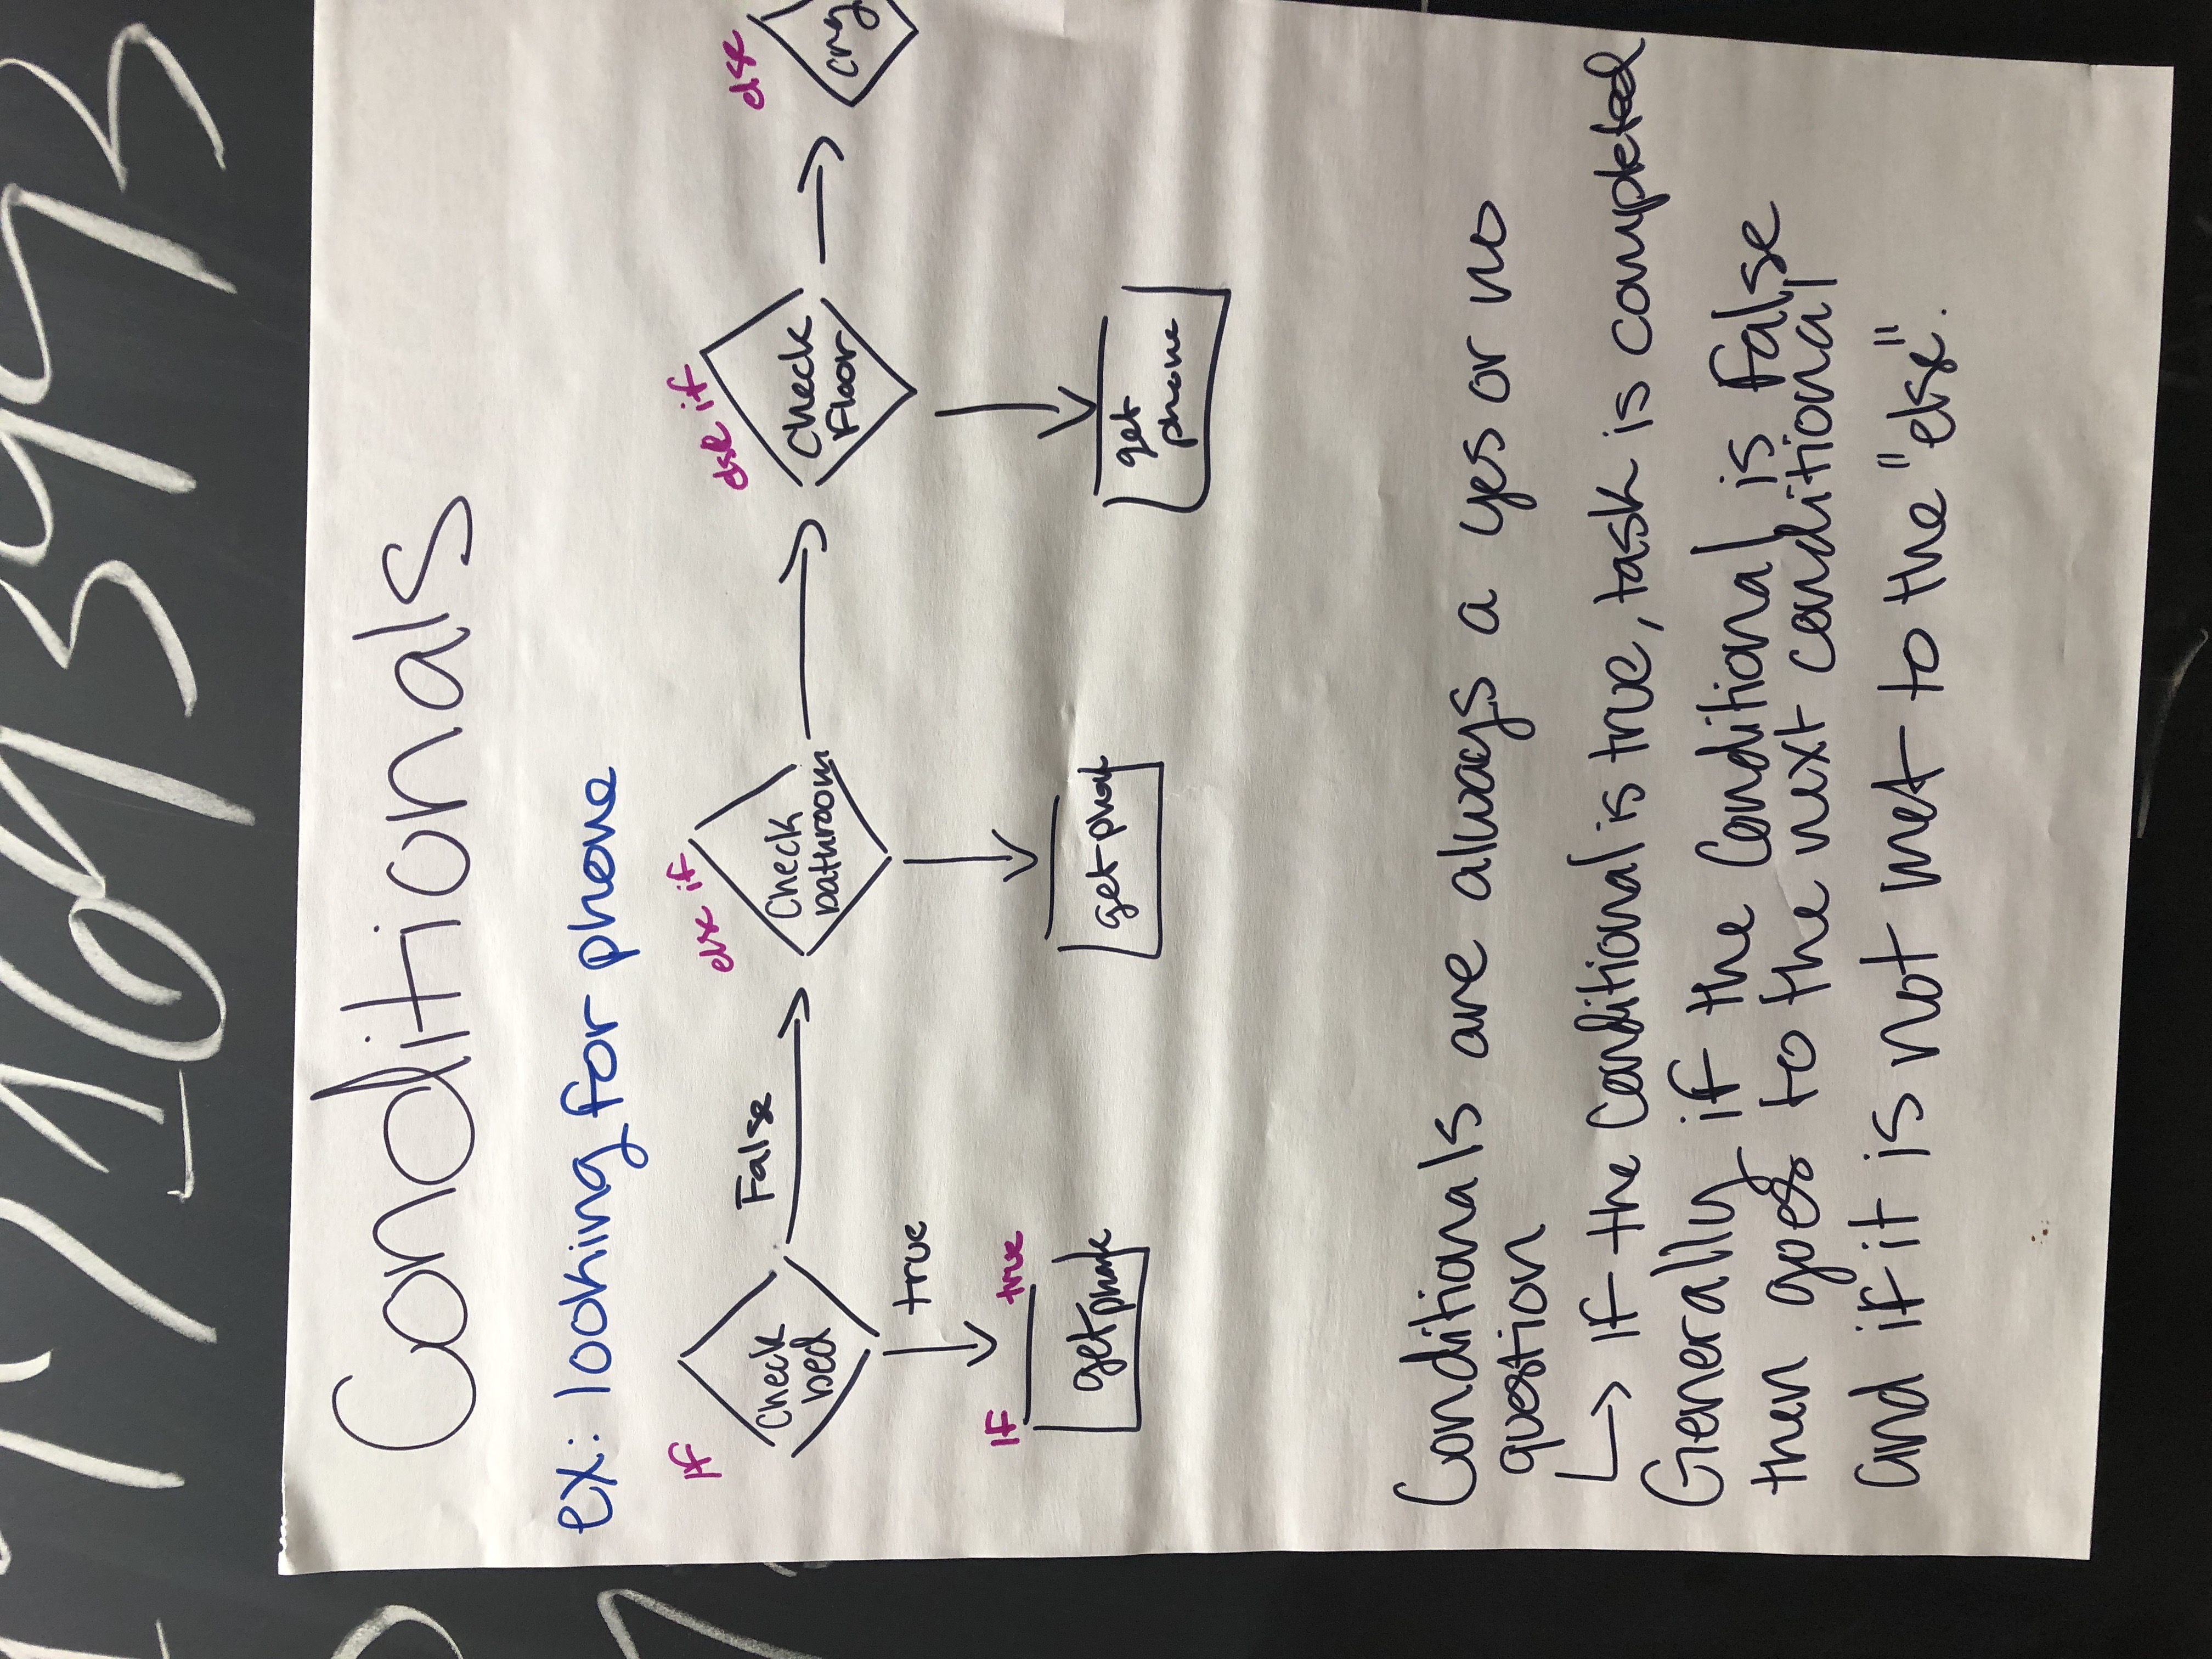 Conditionals
ex: looking for phone
If
else if
else if
else
Check
bed
False
Check
bathroom
Check
Floor
cry
true
If true
get phone
get phone
get
phone
Conditionals are always a yes or no
question
↳ If the conditional is true, task is completed
Generally if the conditional is false
then goes to the next conditional
and if it is not met to the "else".